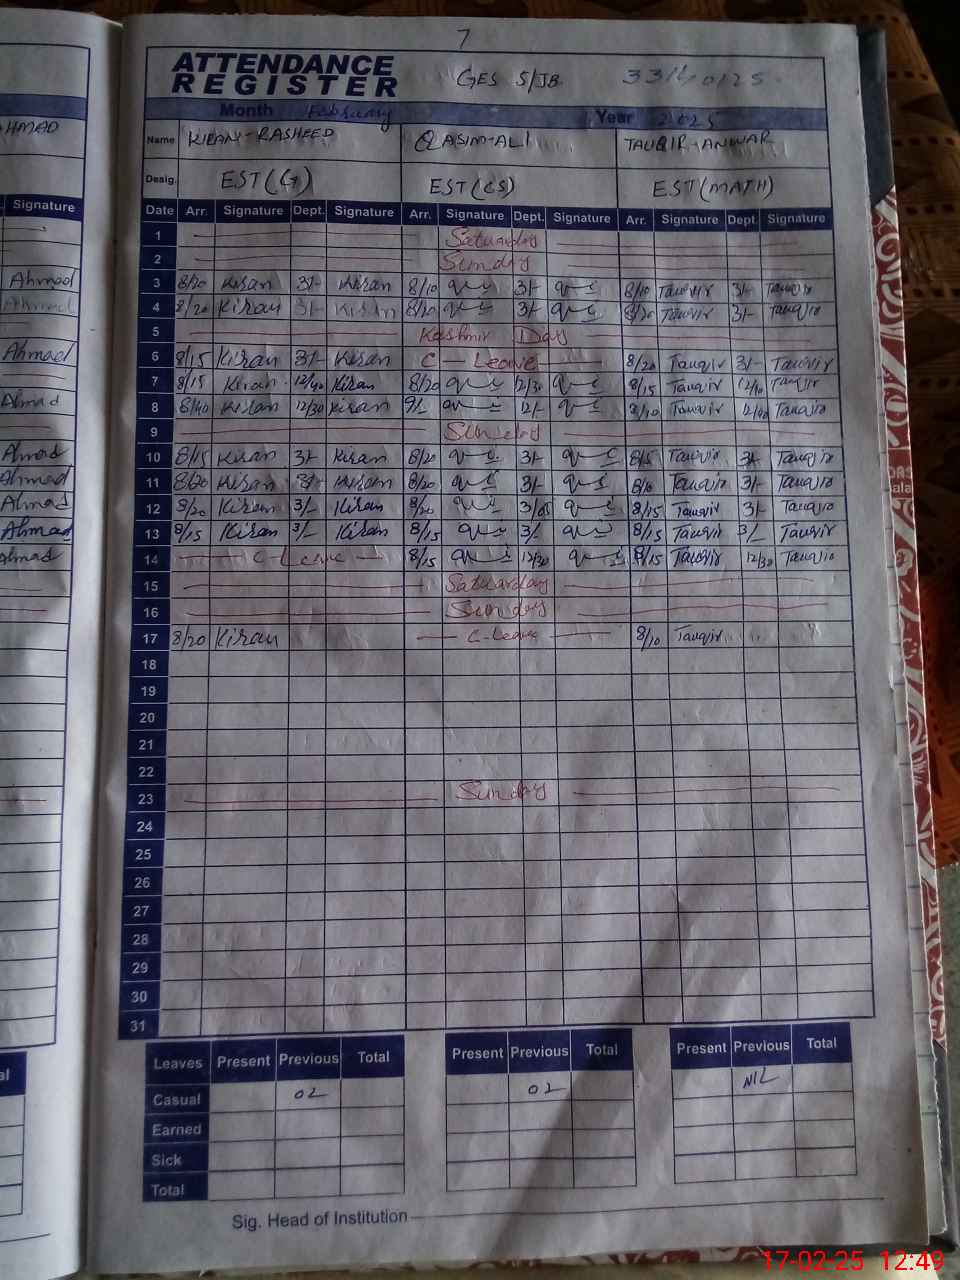 7
ATTENDANCE REGISTER GES 5/JB
Month February Year 2025
Name KIRAN-RASHEED QASIM-ALI TAUQIR-ANWAR
Desig. EST(G) EST(CS) EST(MATH)
Date Arr. Signature Dept. Signature Arr. Signature Dept. Signature Arr. Signature Dept. Signature
1 Saturday
2 Sunday
3 8/20 Kiran 3/- Kiran 8/10 3/- 8/10 Tauqir 3/- Tauqir
4 8/20 Kiran 3/- Kiran 8/20 3/- 8/20 Tauqir 3/- Tauqir
5 Kashmir Day
6 8/15 Kiran 3/- Kiran C-Leave 8/20 Tauqir 3/- Tauqir
7 8/15 Kiran 12/40 Kiran 8/20 12/30 8/15 Tauqir 12/10 Tauqir
8 8/40 Kiran 12/30 Kiran 9/- 12/- 8/10 Tauqir 12/40 Tauqir
9 Sunday
10 8/15 Kiran 3/- Kiran 8/20 3/- 8/15 Tauqir 3/- Tauqir
11 8/20 Kiran 3/- Kiran 8/20 3/- 8/10 Tauqir 3/- Tauqir
12 8/20 Kiran 3/- Kiran 8/20 3/05 8/15 Tauqir 3/- Tauqir
13 8/15 Kiran 3/- Kiran 8/15 3/- 8/15 Tauqir 3/- Tauqir
14 C-Leave 8/15 12/30 8/15 Tauqir 12/30 Tauqir
15 Saturday
16 Sunday
17 8/20 Kiran C-Leave 8/10 Tauqir
18
19
20
21
22
23 Sunday
24
25
26
27
28
29
30
31
Leaves Present Previous Total Present Previous Total Present Previous Total
Casual 02 02 NIL
Earned
Sick
Total
Sig. Head of Institution
HMAD
Signature
Ahmad
Ahmad
Ahmad
Ahmad
Ahmad
Ahmad
Ahmad
Ahmad
Ahmad
17-02-25 12:49